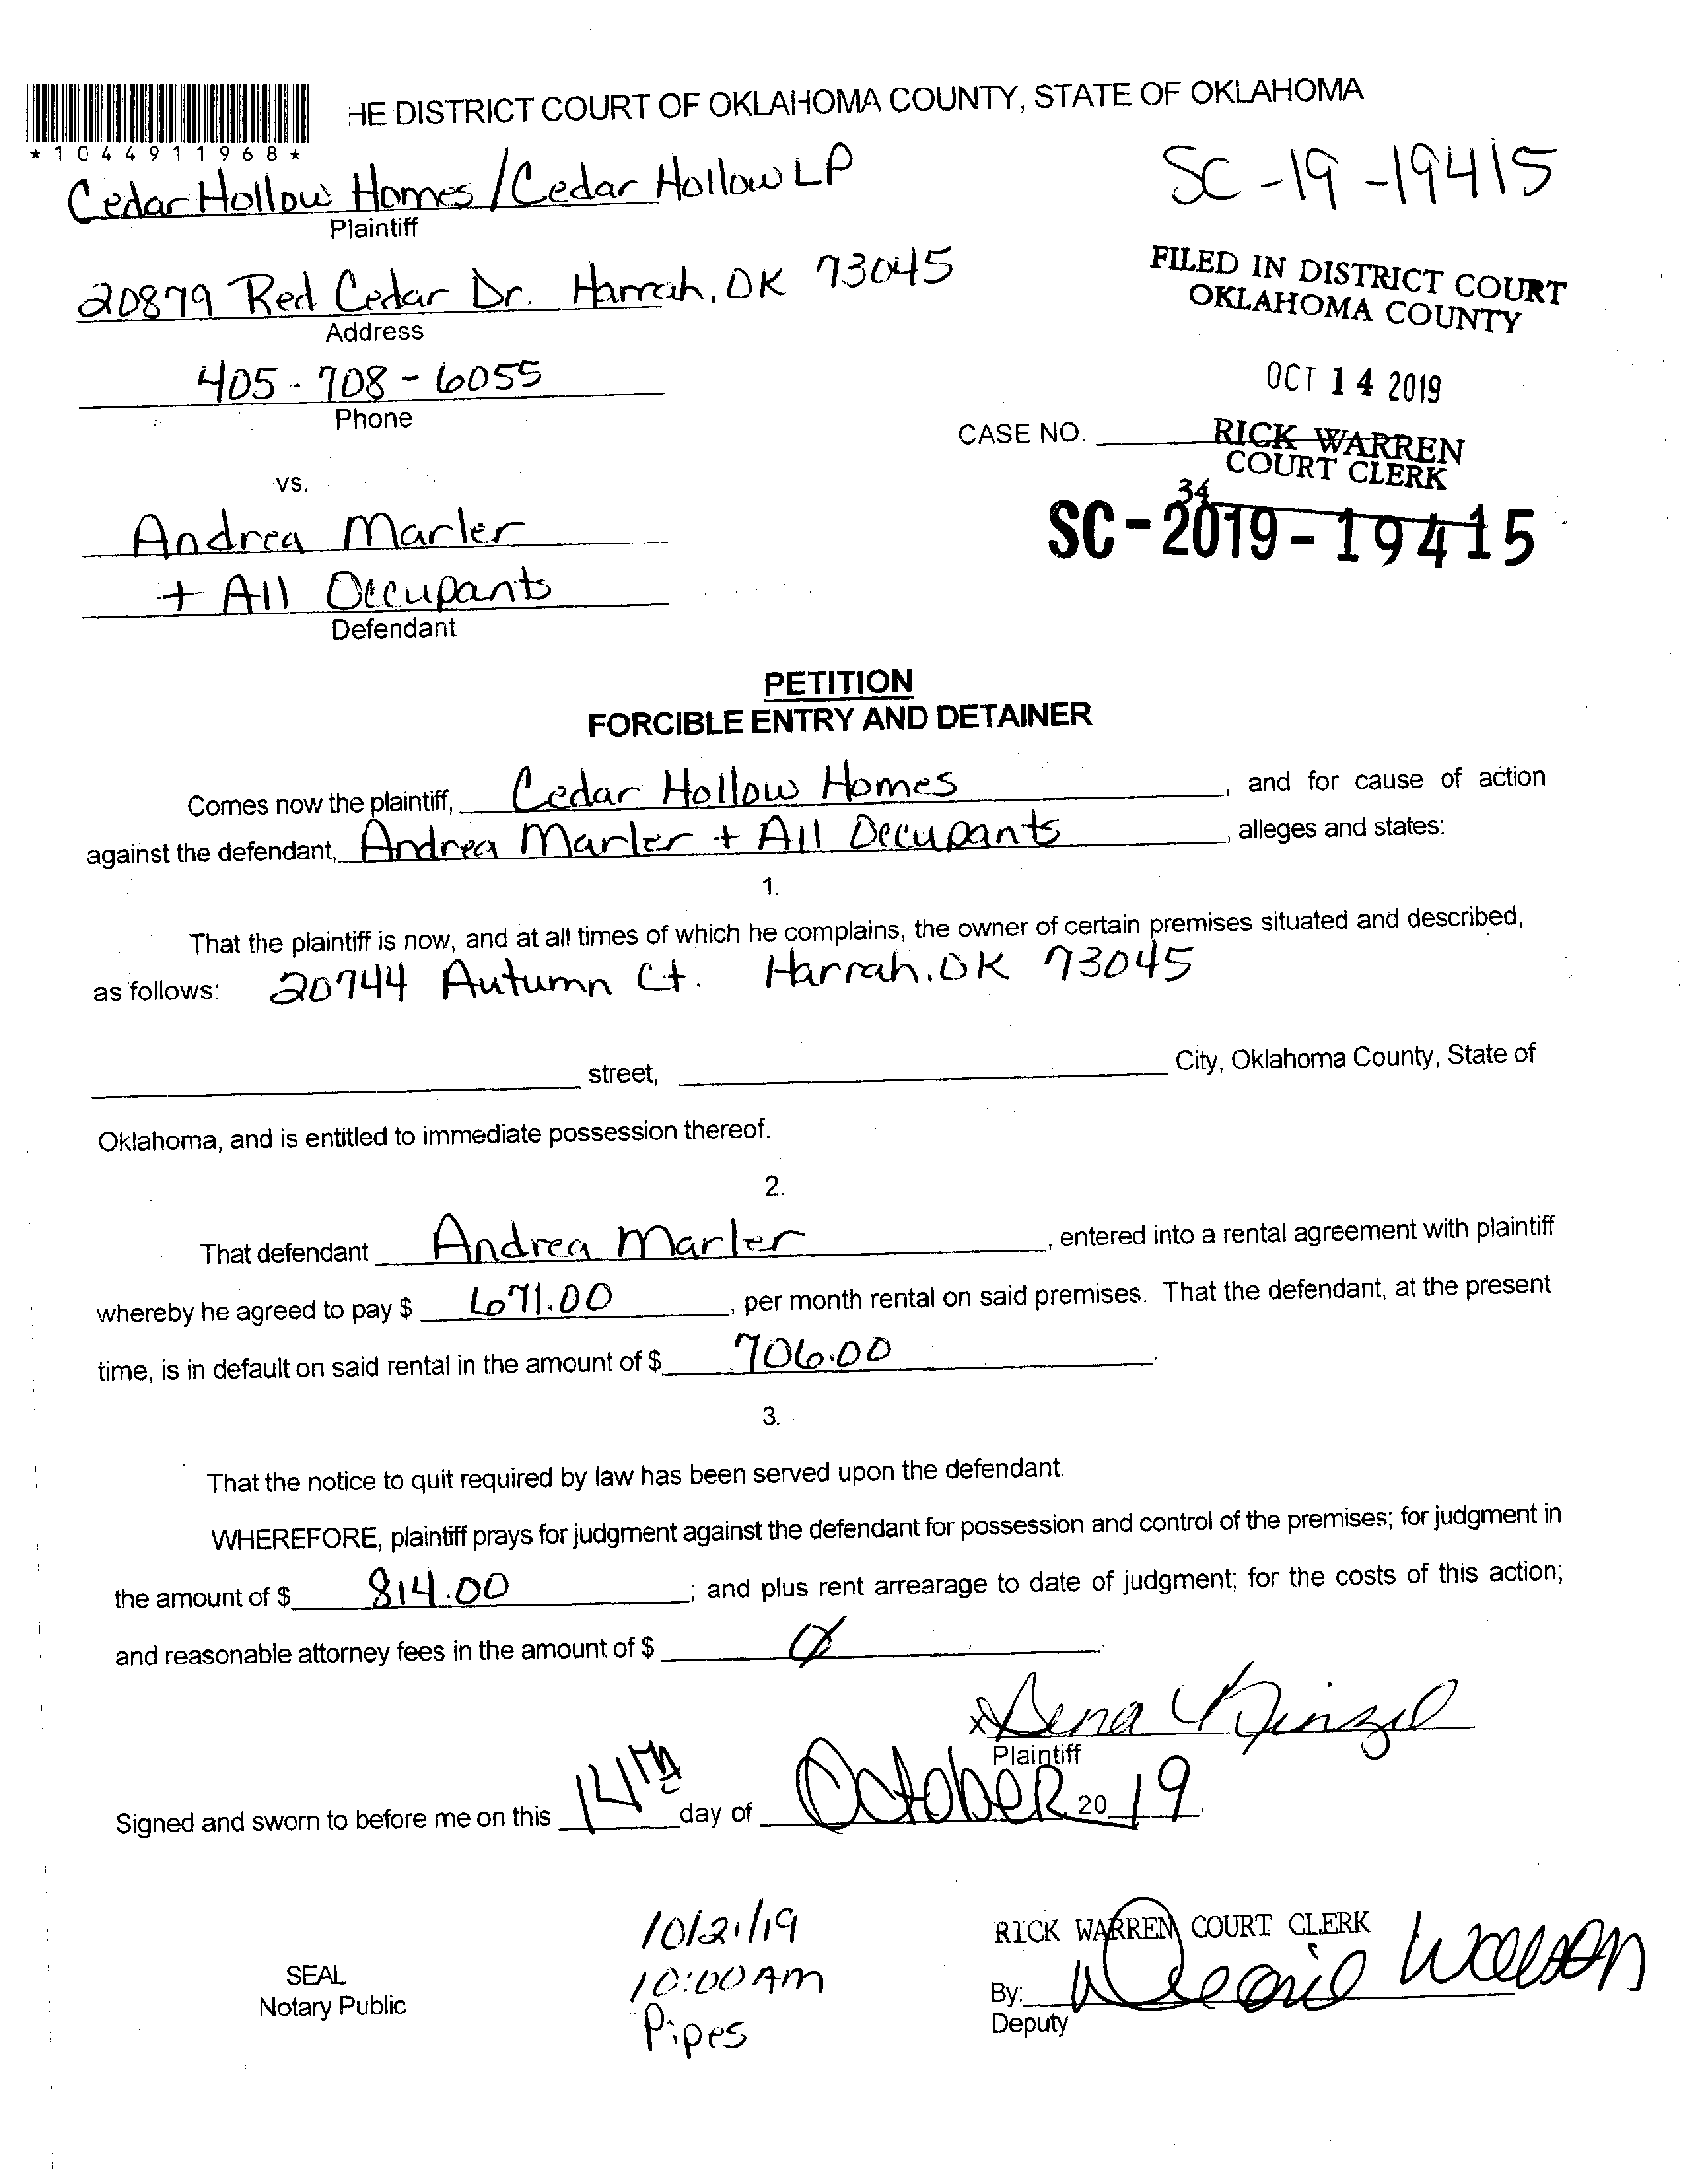 HE DISTRICT COURT OF OKLAHOMA COUNTY, STATE OF OKLAHOMA
*1044911968*
Cedar Hollow Homes / Cedar Hollow LP
Plaintiff
SC-19-19415
20879 Red Cedar Dr. Harrah, OK 73045
Address
FILED IN DISTRICT COURT
OKLAHOMA COUNTY
405-708-6055
Phone
OCT 14 2019
CASE NO.
RICK WARREN
COURT CLERK
34
vs.
SC-2019-19415
Andrea Marler
+ All Occupants
Defendant
PETITION
FORCIBLE ENTRY AND DETAINER
Comes now the plaintiff, Cedar Hollow Homes, and for cause of action
against the defendant, Andrea Marler + All Occupants, alleges and states:
1.
That the plaintiff is now, and at all times of which he complains, the owner of certain premises situated and described,
as follows: 20744 Autumn Ct. Harrah, OK 73045
street, City, Oklahoma County, State of
Oklahoma, and is entitled to immediate possession thereof.
2.
That defendant Andrea Marler, entered into a rental agreement with plaintiff
whereby he agreed to pay $ 671.00, per month rental on said premises. That the defendant, at the present
time, is in default on said rental in the amount of $ 706.00.
3.
That the notice to quit required by law has been served upon the defendant.
WHEREFORE, plaintiff prays for judgment against the defendant for possession and control of the premises; for judgment in
the amount of $ 814.00; and plus rent arrearage to date of judgment; for the costs of this action;
and reasonable attorney fees in the amount of $ Ø
Plaintiff
Signed and sworn to before me on this 14th day of October 2019.
10/21/19
10:00 AM
Pipes
SEAL
Notary Public
RICK WARREN COURT CLERK
By:
Deputy